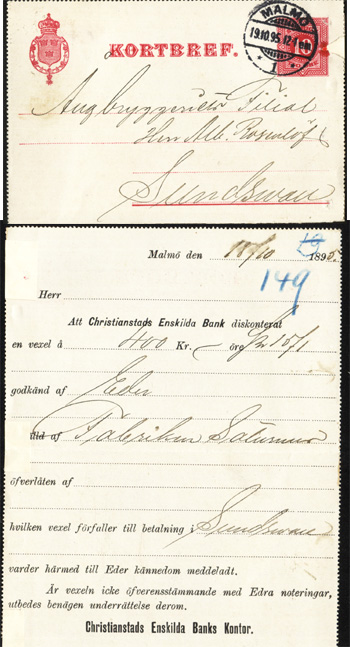 KORTBREF.
MALMÖ
19.10.95
1
Ångbryggeriets Filial
Herr Alb. Rosenlöf
Sundswall
Malmö den 18/10 1895.
19
149
Herr
Att Christianstads Enskilda Bank diskonterat
en vexel å 400 Kr. — öre 15/1
godkänd af Eder
utd af Fabriken Saturnus
öfverlåten af
hvilken vexel förfaller till betalning i Sundswall
varder härmed till Eder kännedom meddeladt.
Är vexeln icke öfverensstämmande med Edra noteringar,
utbedes benägen underrättelse derom.
Christianstads Enskilda Banks Kontor.